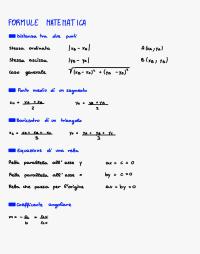 FORMULE MATEMATICA
Distanza tra due punti
Stessa ordinata |xB - xA| A(xA; yA)
Stessa ascissa |yB - yA| B(xB; yB)
Caso generale √(xB - xA)² + (yB - yA)²
Punto medio di un segmento
xM = xA + xB / 2 yM = yA + yB / 2
Baricentro di un triangolo
xG = xA + xB + xC / 3 yG = yA + yB + yC / 3
Equazione di una retta
Retta parallela all'asse y ax + c = 0
Retta parallela all'asse x by + c = 0
Retta che passa per l'origine ax + by = 0
Coefficiente angolare
m = - a / b